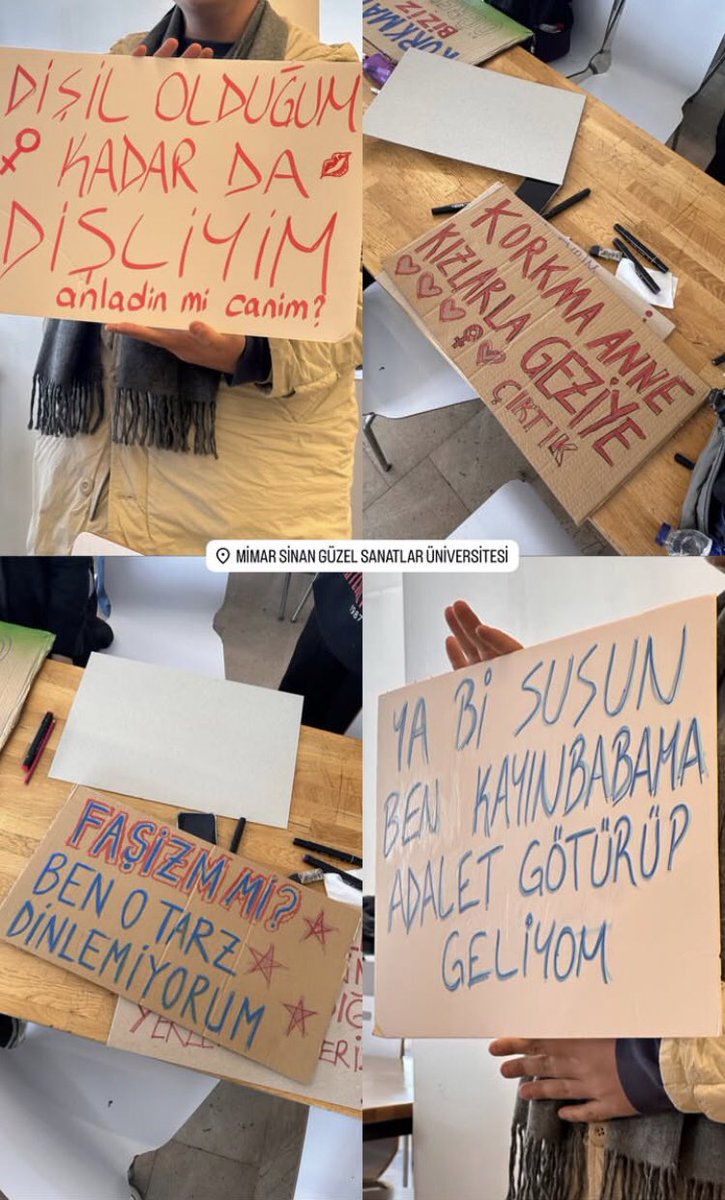 DİŞİL OLDUĞUM
KADAR DA
DİŞLİYİM
anladin mi canim?
KORKMA
BİZİZ
KORKMA ANNE
KIZLARLA GEZİYE
ÇIKTIK
MİMAR SİNAN GÜZEL SANATLAR ÜNİVERSİTESİ
1987
FAŞİZM Mİ?
BEN O TARZ
DİNLEMİYORUM
YA Bİ SUSUN
BEN KAYINBABAMA
ADALET GÖTÜRÜP
GELİYOM